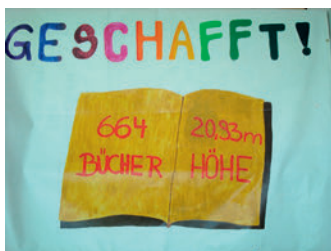 GESCHAFFT!
664
BÜCHER
20,93m
HÖHE